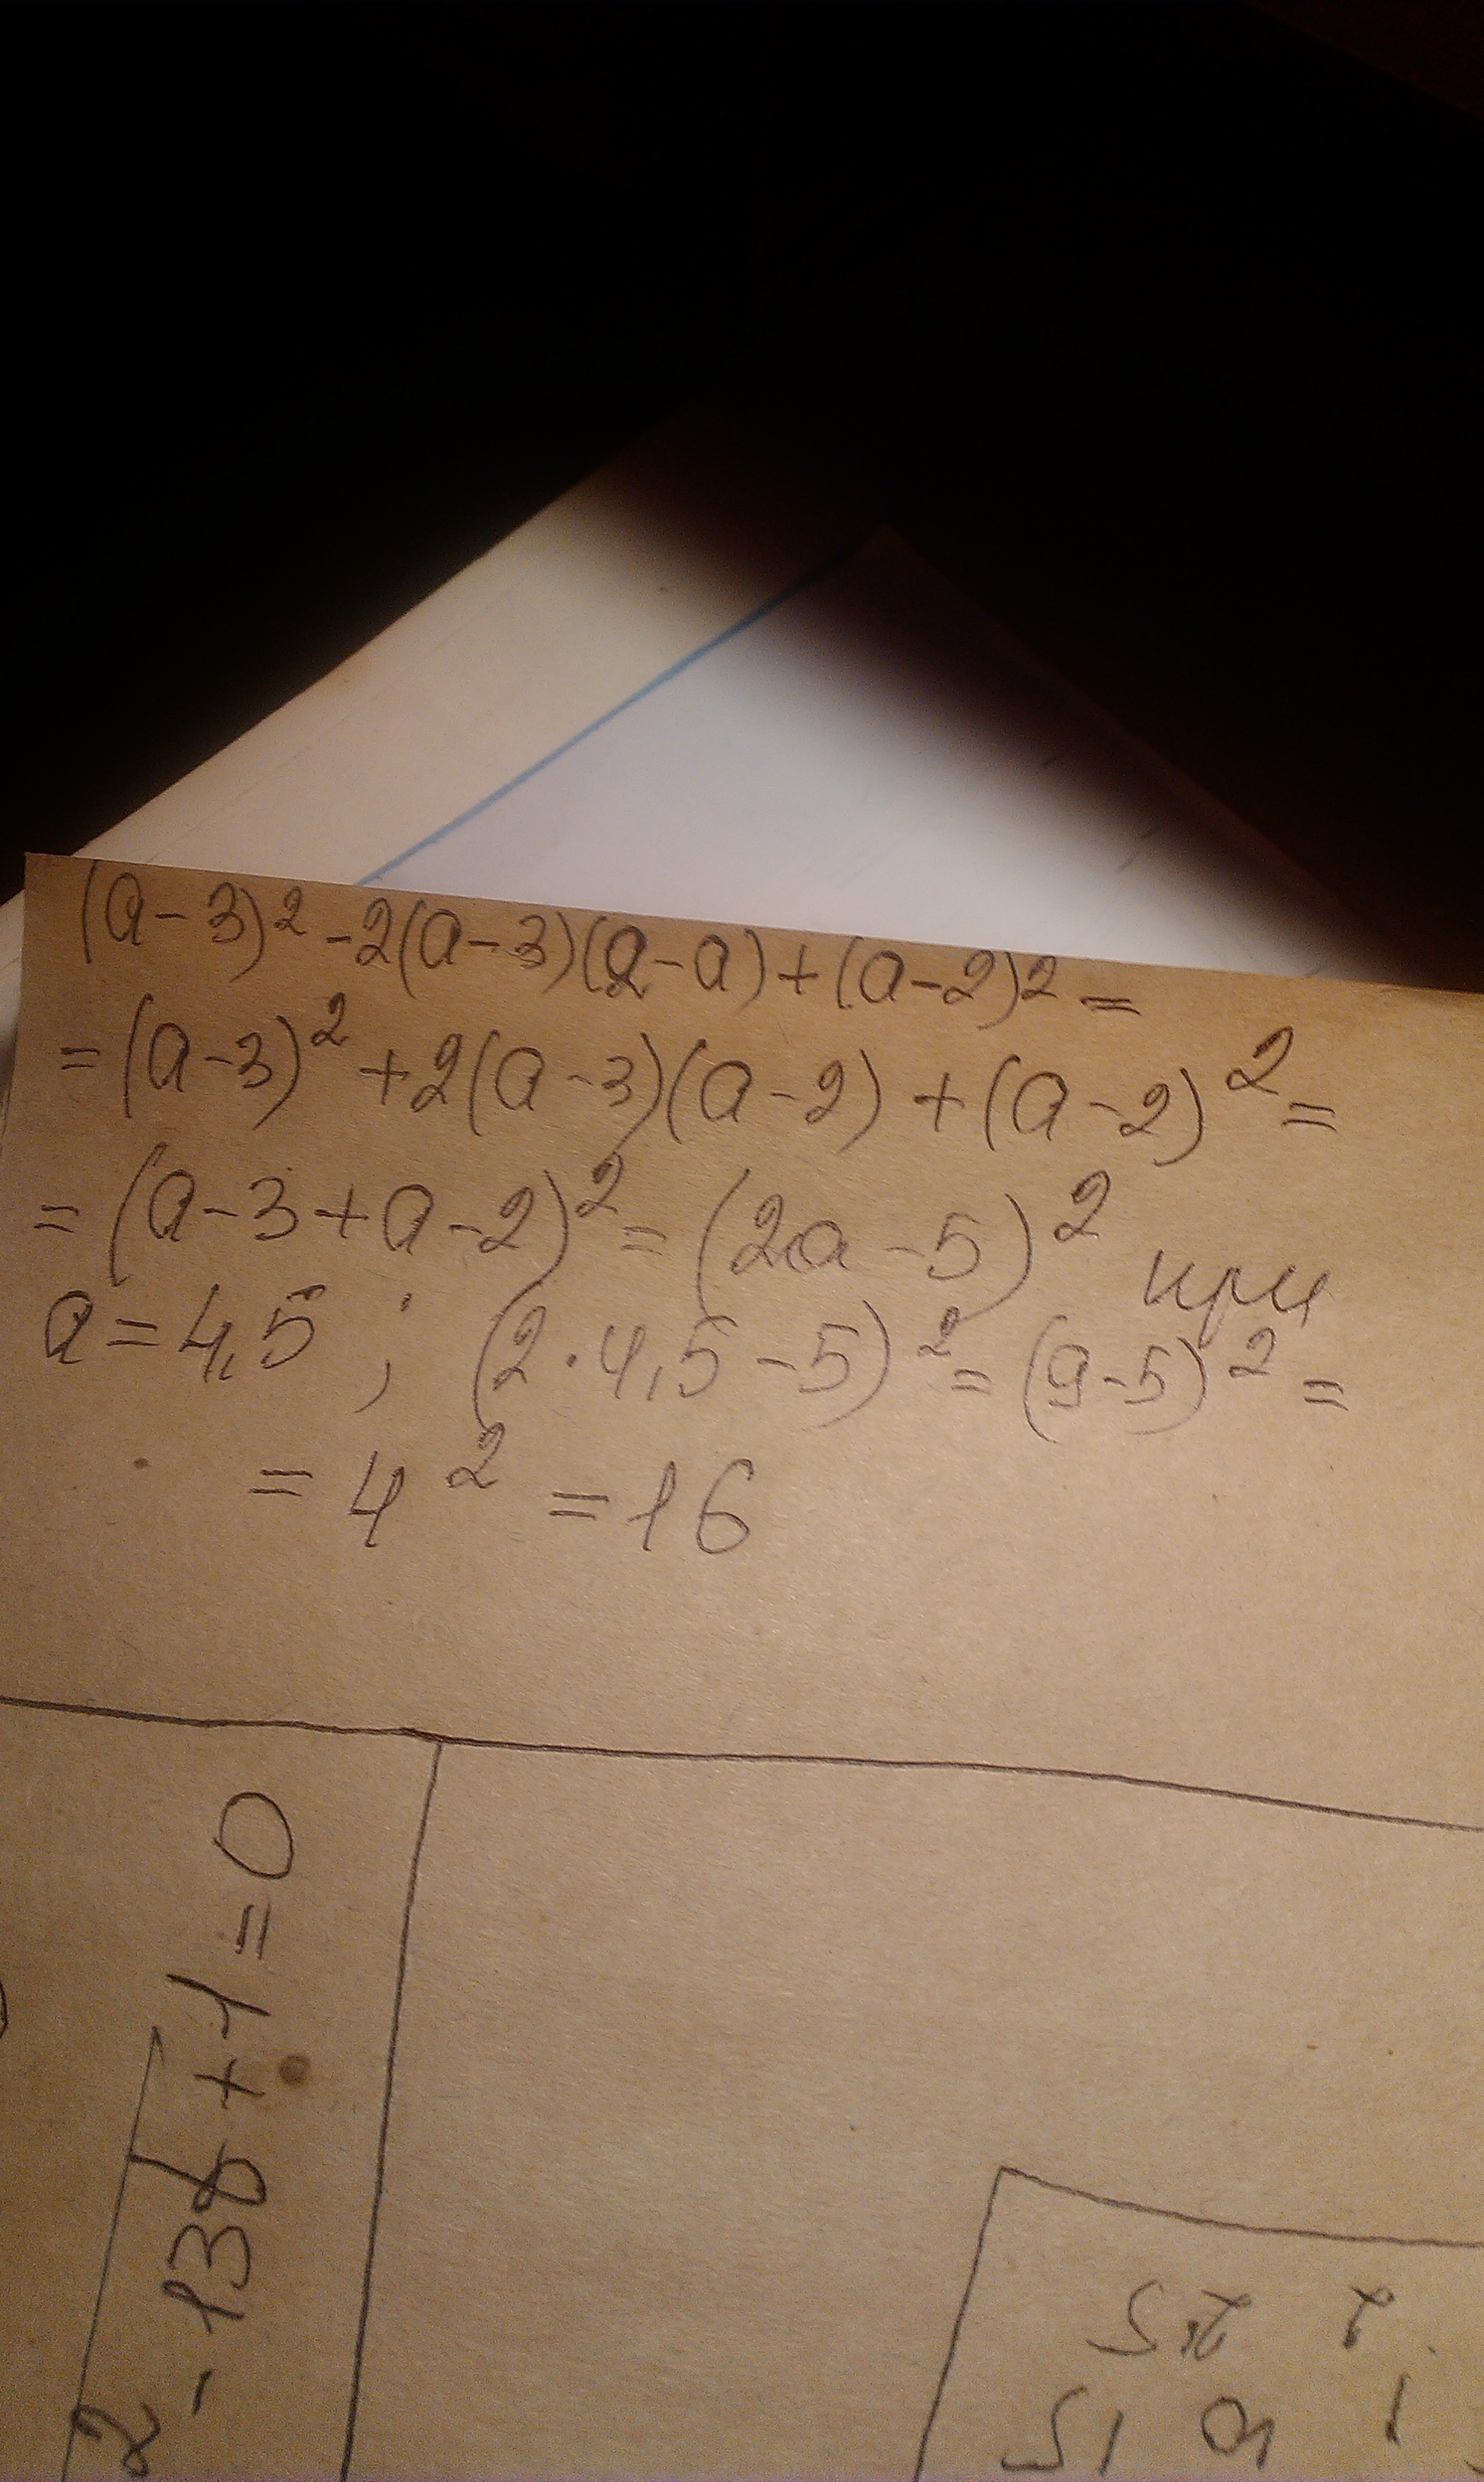 (a-3)² -2(a-3)(2-a)+(a-2)² =
=(a-3)² +2(a-3)(a-2)+(a-2)² =
=(a-3+a-2)² =(2a-5)² при
a=4,5 ; (2·4,5-5)² =(9-5)² =
=4² =16
- 13b+1=0